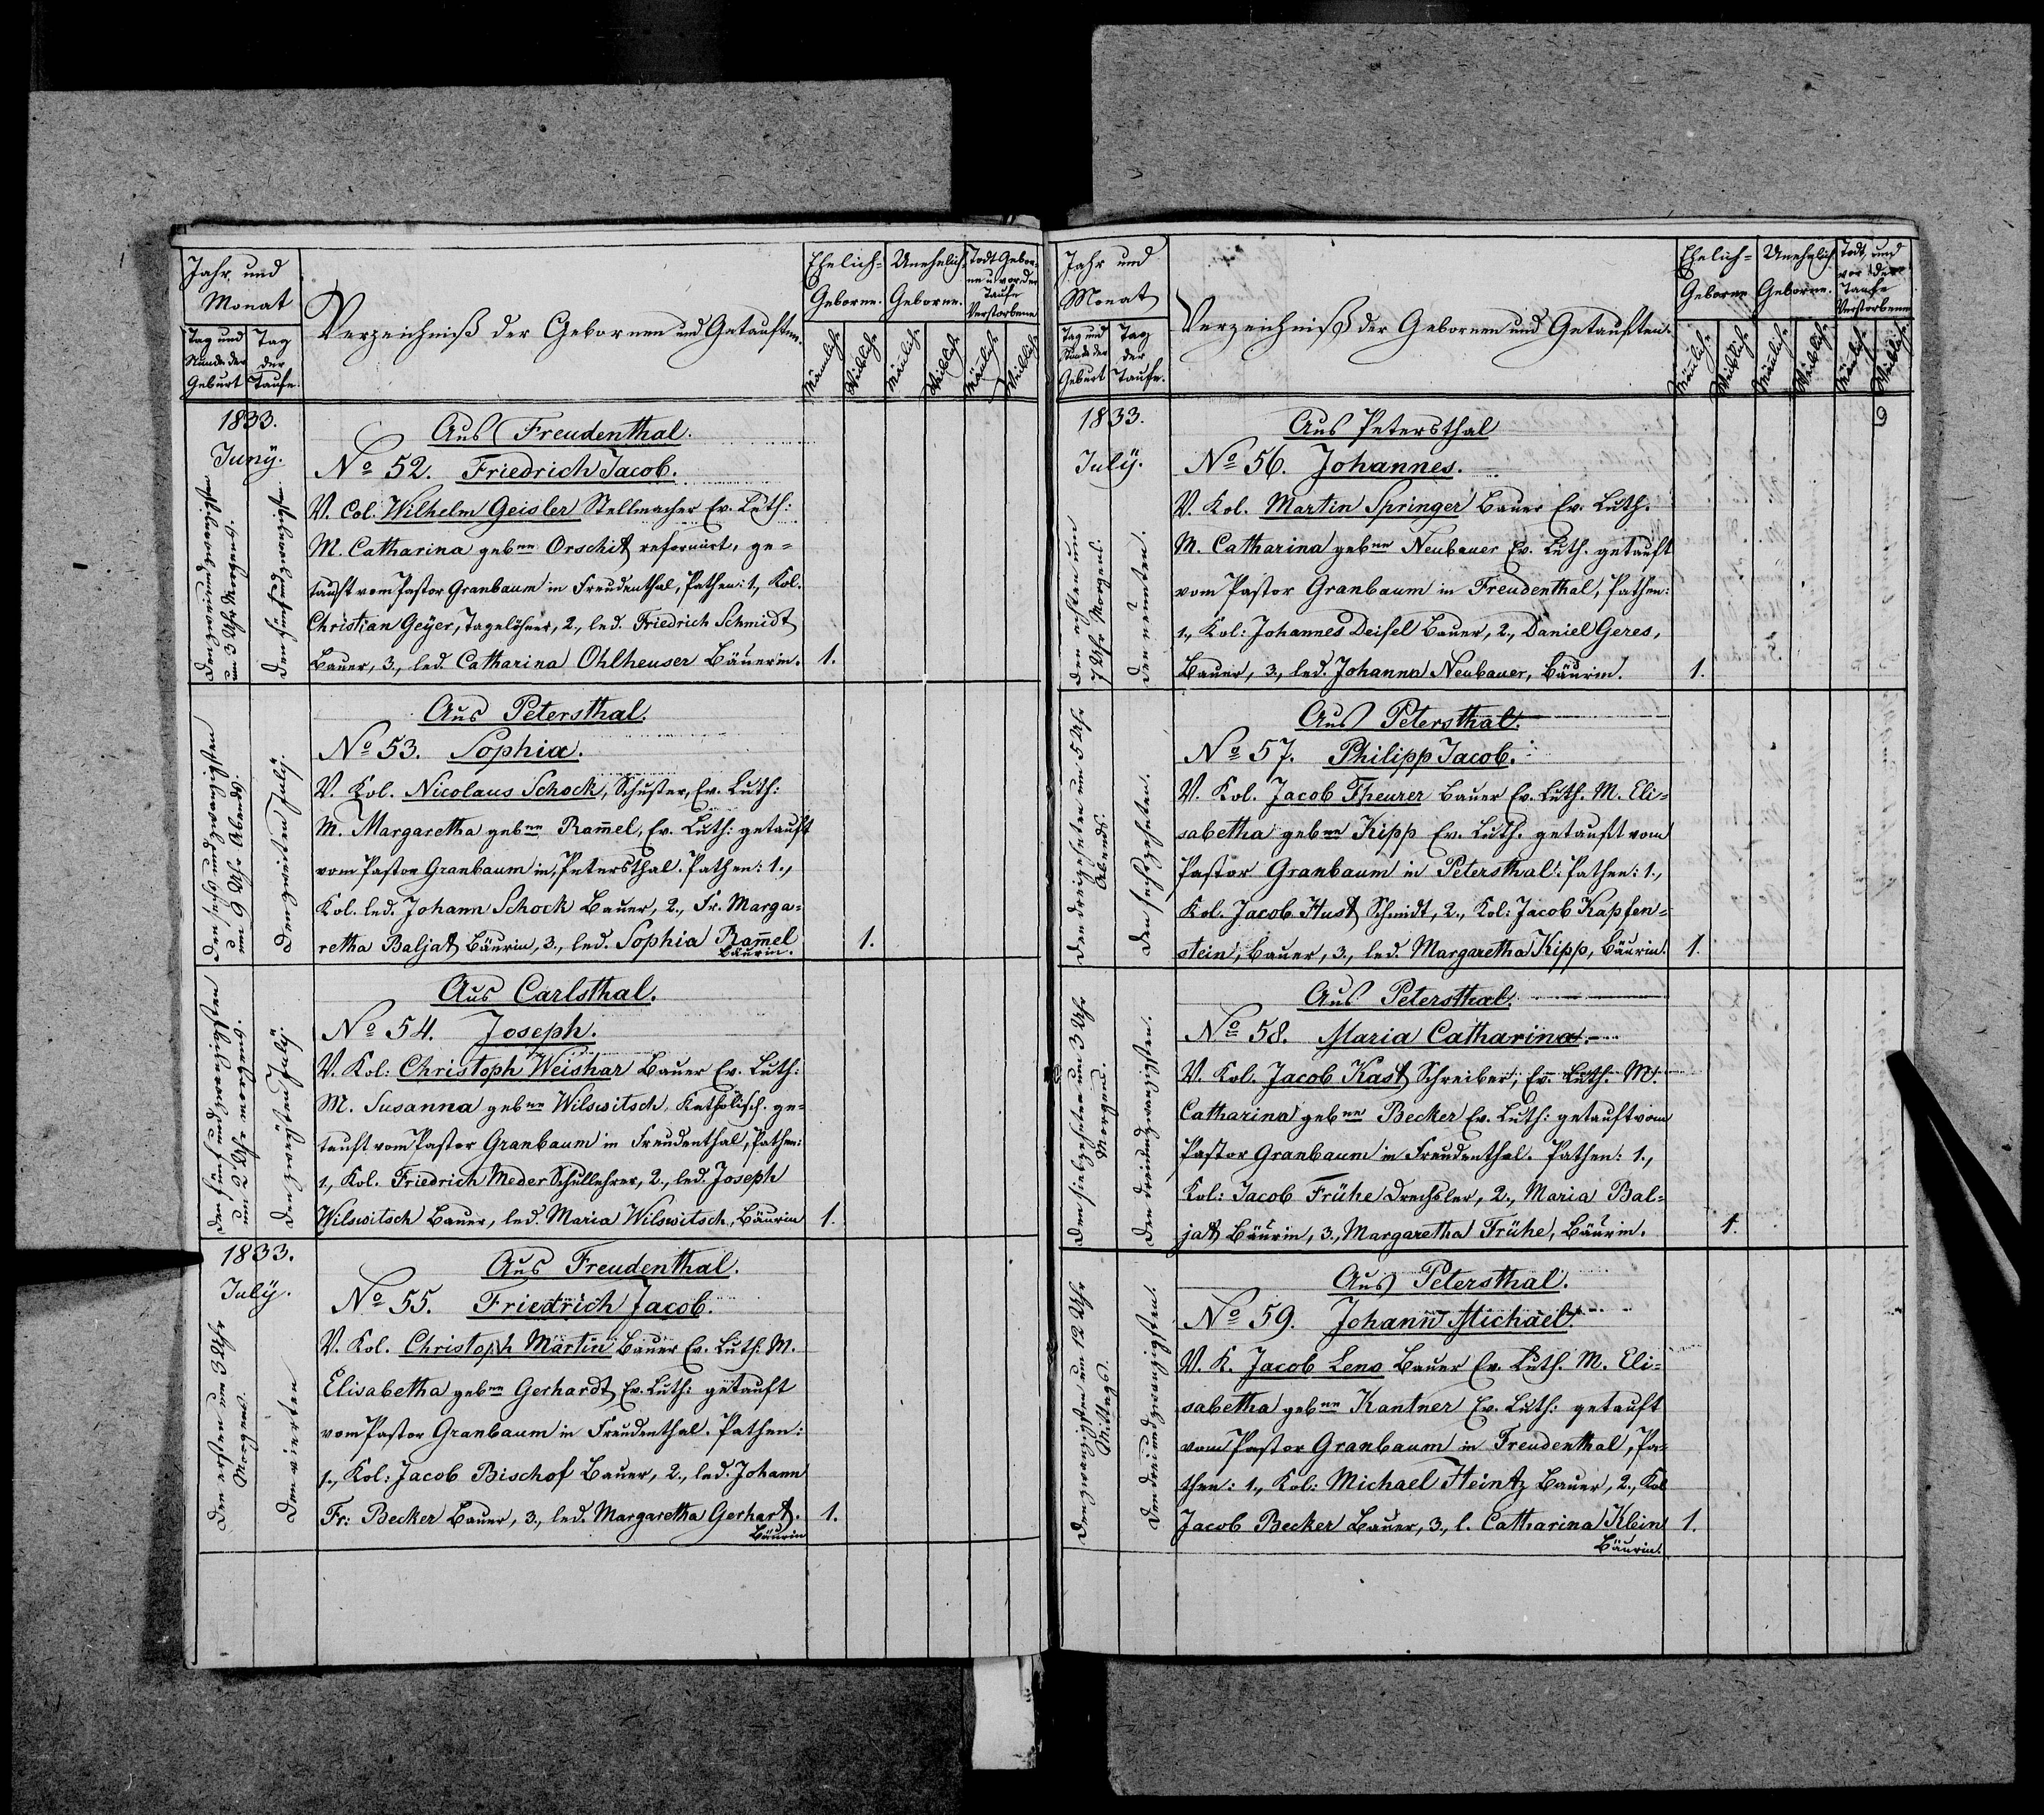 Jahr und
Monat
Tag und
Stunde der
Geburt
Tag
der
Taufe.
Verzeichniß der Gebornen und Getauften.
Ehelich-
Geborne.
Unehelich
Geborne.
Todt Gebor-
ne u. vor der
Taufe
Verstorbene
Mänlich.
Weiblich.
Mänlich.
Weiblich.
Mänlich.
Weiblich.
1833.
Juny.
den zweiundzwanzigsten
um 3 Uhr Morgens.
den fünfundzwanzigsten.
Aus Freudenthal.
No 52. Friedrich Jacob.
V. Col. Wilhelm Geisler Stellmacher Ev. Luth:
M. Catharina gebne Orschit reformirt, ge=
tauft vom Pastor Granbaum in Freudenthal, Pathen: 1., Kol.
Christian Geÿer, Tagelöhner, 2., led. Friedrich Schmidt
Bauer, 3., led. Catharina Ohlheuser Bäuerin. 1.
den sechs und zwanzigsten
um 9 Uhr Abends.
den zweiten July.
Aus Petersthal.
No 53. Sophia.
V. Kol. Nicolaus Schock, Schuster, Ev. Luth:
M. Margaretha gebne Ram̅el, Ev. Luth: getauft
vom Pastor Granbaum in Petersthal. Pathen: 1.,
Kol. led. Johann Schock Bauer, 2., Fr. Marga=
retha Baljat Bäurin, 3., led. Sophia Ram̅el 1.
Bäurin.
den fünf und zwanzigsten
um 2 Uhr morgens.
den zwoten July.
Aus Carlsthal.
No 54. Joseph.
V. Kol: Christoph Weishar Bauer Ev. Luth:
M. Susanna gebne Wilswitsch, Katholisch. ge=
tauft vom Pastor Granbaum in Freudenthal, Pathen:
1., Kol. Friedrich Meder Schullehrer, 2., led. Joseph
Wilswitsch Bauer, led. Maria Wilswitsch, Bäurin 1.
1833.
July.
den ersten um 3 Uhr
Morgens.
den vierten
Aus Freudenthal.
No 55. Friedrich Jacob.
V. Kol. Christoph Martin Bauer Ev. Luth. M.
Elisabetha gebne Gerhardt Ev. Luth: getauft
vom Pastor Granbaum in Freudenthal. Pathen:
1., Kol: Jacob Bischof Bauer, 2., led. Johann
Fr: Becker Bauer, 3., led. Margaretha Gerhart. 1.
Bäurin
Jahr und
Monat
Tag und
Stunde der
Geburt
Tag
der
Taufe.
Verzeichniß der Gebornen und Getauften.
Ehelich=
Geborne
Unehelich
Geborne.
Todt, und
vor der
Taufe
Verstorbene
Mänlich.
Weiblich.
Mänlich.
Weiblich.
Mänlich.
Weiblich.
9
1833.
July.
den achten um
7 Uhr Morgens.
den neunten.
Aus Petersthal
No 56. Johannes.
V. Kol. Martin Springer Bauer Ev. Luth.
M. Catharina gebne Neubauer Ev. Luth. getauft
vom Pastor Granbaum in Freudenthal, Pathen:
1., Kol: Johannes Deifel Bauer, 2., Daniel Geres,
Bauer, 3., led. Johanna Neubauer, Bäurin. 1.
den dreizehnten um 5 Uhr
Abends.
den sechzehnten.
Aus Petersthal.
No 57. Philipp Jacob.
V. Kol. Jacob Theurer Bauer Ev. Luth. M. Eli=
sabetha gebne Kipp Ev. Luth. getauft vom
Pastor Granbaum in Petersthal: Pathen: 1.,
Kol. Jacob Hust Schmidt, 2., Kol: Jacob Kapfen=
stein, Bauer, 3., led. Margaretha Kipp, Bäurin. 1.
den siebzehnten um 3 Uhr
Morgens.
den dreiundzwanzigsten.
Aus Petersthal.
No 58. Maria Catharina.
V. Kol. Jacob Kast Schreiber, Ev. Luth. M.
Catharina gebne Becker Ev. Luth: getauft vom
Pastor Granbaum in Freudenthal. Pathen: 1.,
Kol: Jacob Frühe Drechsler, 2., Maria Bal=
jat Bäurin, 3., Margaretha Frühe, Bäurin. 1.
den zwanzigsten um 12 Uhr
Mittags.
den dreiundzwanzigsten.
Aus Petersthal.
No 59. Johann Michael.
V. K. Jacob Lens Bauer Ev. Luth. M. Eli=
sabetha gebne Kantner Ev. Luth: getauft
vom Pastor Granbaum in Freudenthal, Pa=
then: 1., Kol: Michael Heintz Bauer, 2., Kol
Jacob Becker Bauer, 3., l. Catharina Klein 1.
Bäurin.